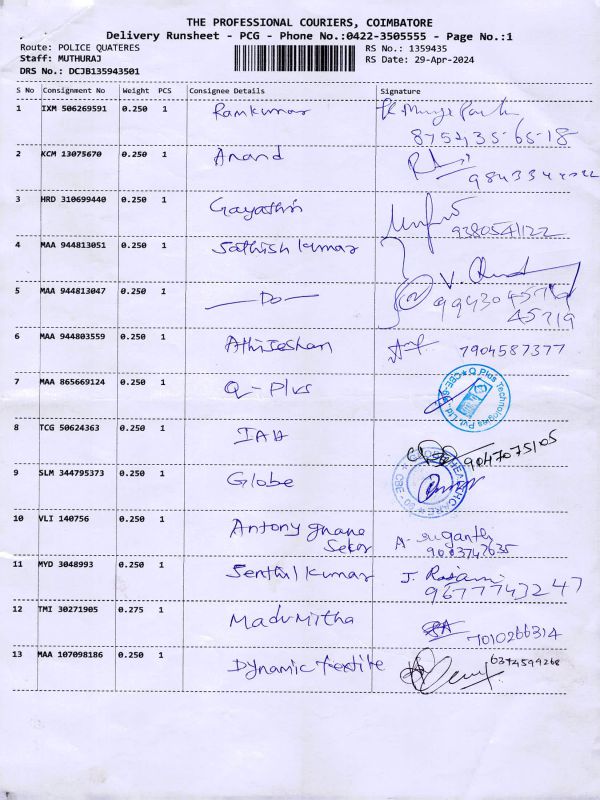 THE PROFESSIONAL COURIERS, COIMBATORE
Delivery Runsheet - PCG - Phone No.:0422-3505555 - Page No.:1
Route: POLICE QUATERES RS No.: 1359435
Staff: MUTHURAJ RS Date: 29-Apr-2024
DRS No.: DCJB135943501
S No Consignment No Weight PCS Consignee Details Signature
1 IXM 506269591 0.250 1 Ramkumar
875435-65-18
2 KCM 13075670 0.250 1 Anand
3 HRD 310699440 0.250 1 Gayathri
9380541122
4 MAA 944813051 0.250 1 Sathish kumar
5 MAA 944813047 0.250 1 —Do—
45719
6 MAA 944803559 0.250 1 7904587377
7 MAA 865669124 0.250 1 Q-Plus
Q Plus Technologies Pvt. Ltd. CBE
8 TCG 50624363 0.250 1
9047075105
9 SLM 344795373 0.250 1 Globe
HEALTHCARE CBE
10 VLI 140756 0.250 1 Antony gnana
Sekar A. suganthi
11 MYD 3048993 0.250 1 Senthil kumar J.
9677743247
12 TMI 30271905 0.275 1 Madumitha
7010266314
13 MAA 107098186 0.250 1 Dynamic textile 6374599268